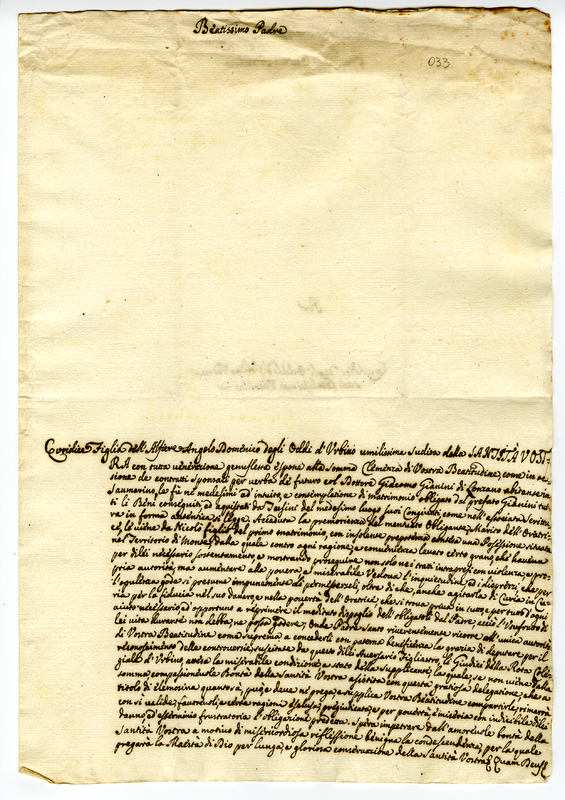 Beatissimo Padre
033
Euridice Figlia dell'Alfiere Angelo Domenico degli Oddi d'Urbino umilissima sudita della SANTITÀ VOST-
RA con tutta venerazione genuflessa espone alla somma Clemenza di Vostra Beatitudine, come in oca-
sione de contratti sponsali per verba de futuro col Dottore Giacomo Gianini di Conzano abitante in
Sanmarino, le fù ne medesimi ad intuito, e contemplazione di matrimonio obligato da prefato Gianini tu-
ti li Beni conseguiti, ed aquistati da Tersini del medesimo luogo suoi Congiunti, come nell'
re in forma autentica si legge. Accaduta la premorienza del mentovato Obligante, Marito dell'Oratri-
ce, le viene da Nicolò figlio del primo matrimonio, con insolente prepotenza una Possessione situata
nel Territorio di Monte dalla quale contro ogni ragione, e levato certo grano che haveva
per di lei necessario sostentamento e mostrando proseguire non solo nei tratti intrapresi con violenza, e pro-
pria autorità, ma aumentare alla povera, e miserabile Vedova l'inquietudini, ed i dispreggi, che per
l'opulenza goda si presume impunemente di permetterseli, oltre di che, anche agitarla di Curia in Cu-
ria per la fiducia nel suo danaro, e nella povertà dell'Oratrice, che si trova priva in tutto per tutto d'ogni
aiuto necessario, ed opportuno a reprimere il meditato dispoglio dell'obligatoli dal Padre, accio l'Usufrutto di
Lei vita durante non debba, ne possa godere; Onde Padre Santo riverentemente ricorre all'unica autorità
di Vostra Beatitudine come suprema a concederli con paterna beneficenza la grazia di deputare per il
riconoscimento della controversia suscitata da questo di lei Aversario Figliastro, li Giudici della Rota Colle-
giale d'Urbino attesa la miserabile condizione, e stato della supplicante, la quale, se non viene dalla
somma, compassionevole Bontà della Santità Vostra assistita con questa graziosa delegazione, che a
titolo di elemosina quanto sà, puo, e deve ne prega, e supplica Vostra Beatitudine compartirle, rimarrà
con si valide, favorevoli, e certe ragioni esclusa, pregiudicata, e per povertà, e miseria con indicibile di lei
danno, ed esterminio frustratoria l'obligazione predetta. Spera impetrare dall'amorevole bontà della
Santità Vostra a motivo di misericordiosa riflessione benigna la condescendenza, per la quale
pregarà la Maestà di Dio per lunga, e gloriosa conservazione della Santità Vostra Quam Deus